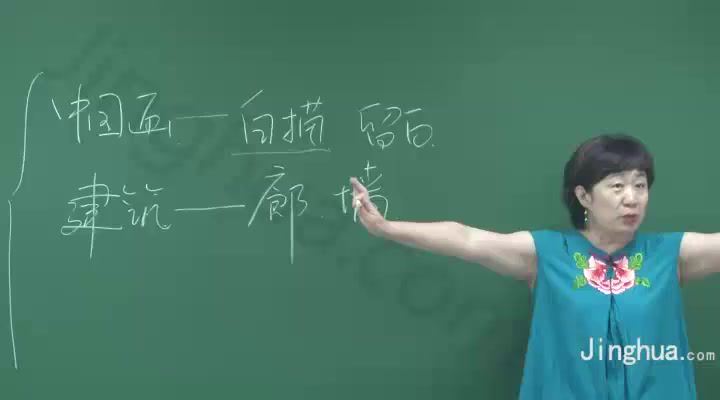 中国画——白描 留白.
建筑——廊.墙
Jinghua.com